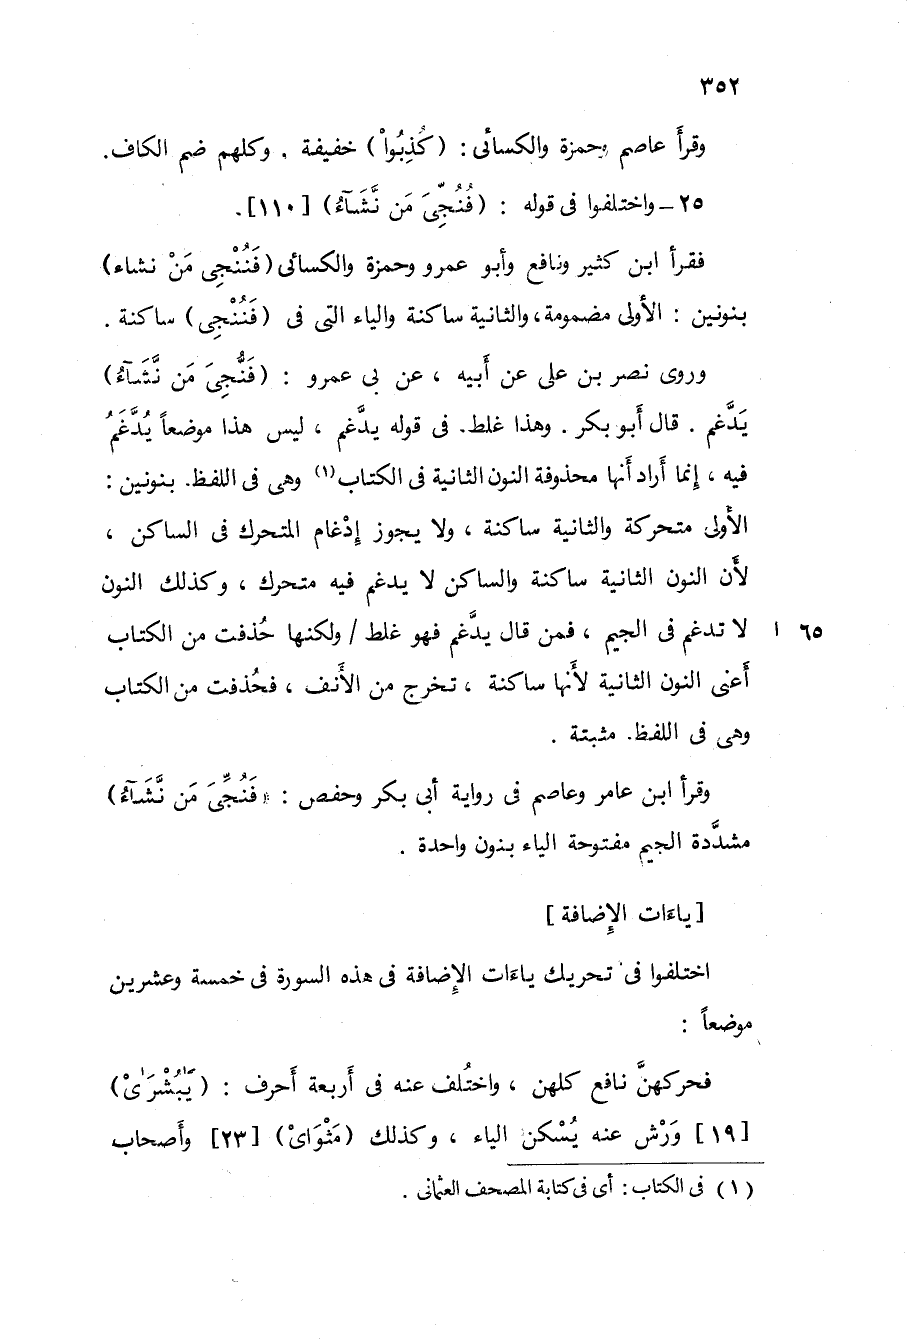 ٣٥٢
وقرأ عاصم وحمزة والكسائى : ( كُذِبُواْ ) خفيفة . وكلهم ضم الكاف.
٢٥ ــ واختلفوا فى قوله : ( فُنُجِّىَ مَن نَّشَآءُ ) [١١٠] .
فقرأ ابن كثير ونافع وأبو عمرو وحمزة والكسائى ( فَنُنْجِى مَنْ نشاء )
بنونين : الأولى مضمومة ، والثانية ساكنة والياء التى فى ( فَنُنْجِى ) ساكنة .
وروى نصر بن على عن أَبيه ، عن بى عمرو : ( فَنُّجِىَ مَن نَّشَآءُ )
يَدَّغم . قال أَبو بكر . وهذا غلط. فى قوله يدَّغم ، ليس هذا موضعاً يُدَّغَمُ
فيه ، إنما أَراد أَنها محذوفة النون الثانية فى الكتاب (١) وهى فى اللفظ. بنونين :
الأولى متحركة والثانية ساكنة ، ولا يجوز إدْغام المتحرك فى الساكن ،
لأَن النون الثانية ساكنة والساكن لا يدغم فيه متحرك ، وكذلك النون
٦٥ ا لا تدغم فى الجيم ، فمن قال يدَّغم فهو غلط / ولكنها حُذفت من الكتاب
أَعنى النون الثانية لأَنها ساكنة ، تخرج من الأَنف ، فحُذفت من الكتاب
وهى فى اللفظ. مثبتة .
وقرأ ابن عامر وعاصم فى رواية أبى بكر وحفص : ( فَنُجِّىَ مَن نَّشَآءُ )
مشدَّدة الجيم مفتوحة الياء بنون واحدة .
[ ياءَات الإِضافة ]
اختلفوا فى تحريك ياءَات الإِضافة فى هذه السورة فى خمسة وعشرين
موضعاً :
فحركهنَّ نافع كلهن ، واختُلف عنه فى أَربعة أَحرف : ( يَٰبُشْرَاىْ )
[١٩] وَرْش عنه يُسْكن الياء ، وكذلك ( مَثْوَاىْ ) [٢٣] وأَصحاب
(١) فى الكتاب : أى فى كتابة المصحف العثمانى .